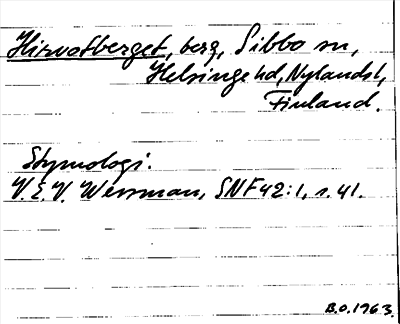 Hirvotberget, berg, Sibbo sn,
Helsinge hd, Nylands l,
Finland.
Etymologi.
V.E.V. Wessman, SNF 42:1, s. 41.
B.O. 1963.